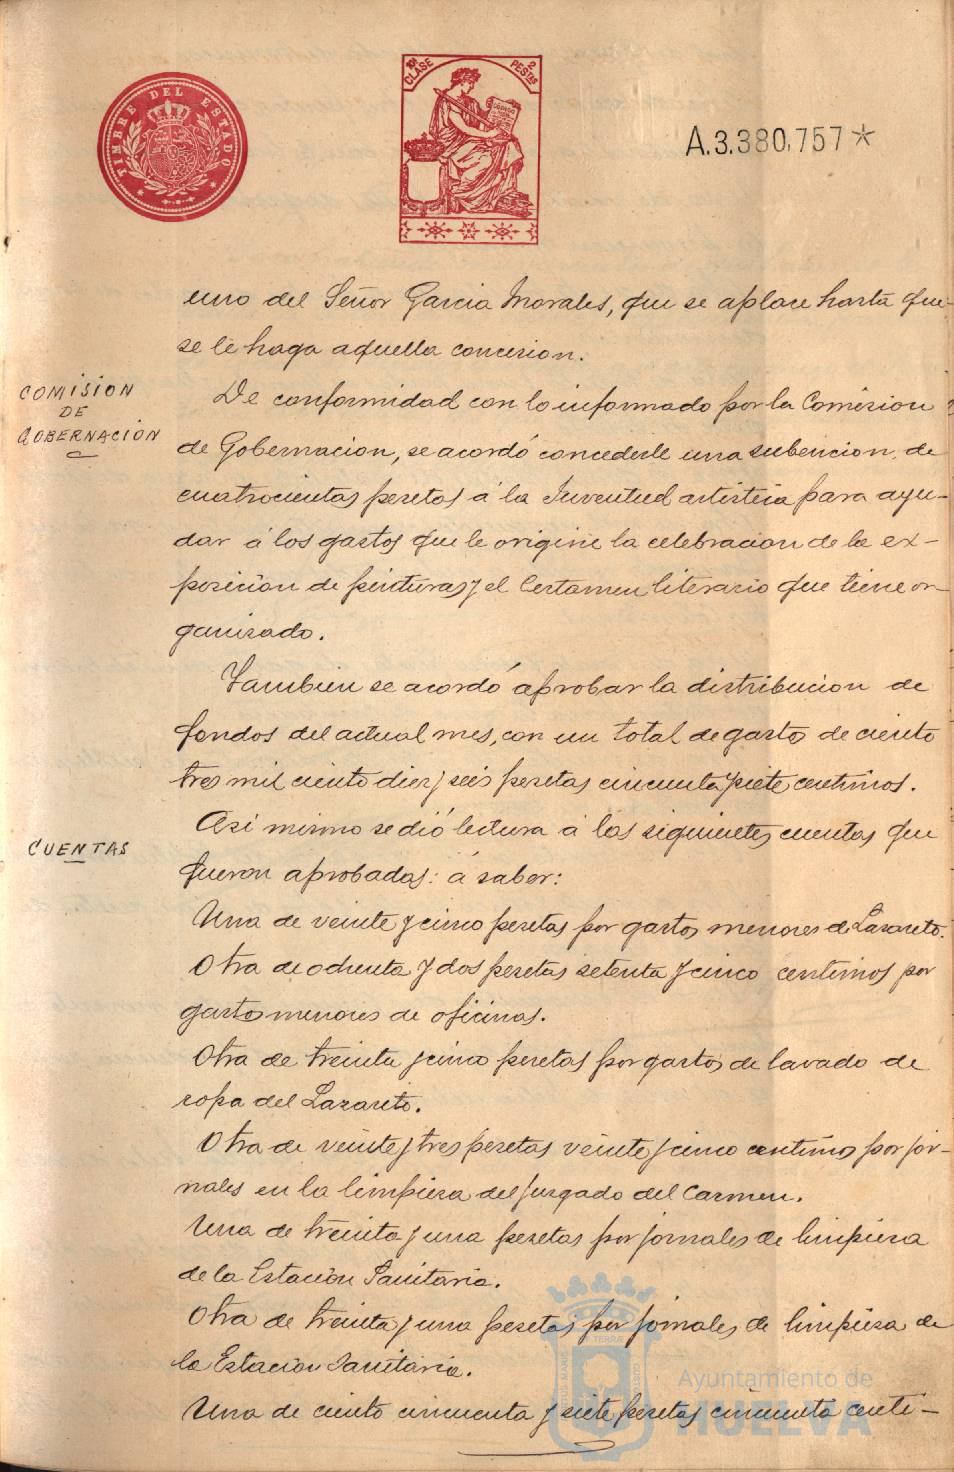 TIMBRE DEL ESTADO
10ª CLASE 2 PESTAS
A.3.380.757*
uno del Señor Garcia Morales, que se aplace hasta que
se le haga aquella concesion.
COMISION
DE
GOBERNACIÓN
De conformidad con lo informado por la Comision
de Gobernacion, se acordó concederle una subencion de
cuatrocientas pesetas á la Juventud artistica para ayu-
dar á los gastos que le origine la celebracion de la ex-
posición de pinturas y el Certamen literario que tiene or-
ganizado.
Tambien se acordó aprobar la distribucion de
fondos del actual mes, con un total de gastos de ciento
tres mil ciento diez y seis pesetas cincuenta y siete centimos.
CUENTAS
Asi mismo se dió lectura á las siguientes cuentas que
fueron aprobadas: á saber:
Una de veinte y cinco pesetas por gastos menores de Lazareto.
Otra de ochenta y dos pesetas setenta y cinco centimos por
gastos menores de oficinas.
Otra de treinta y cinco pesetas por gastos de lavado de
ropa del Lazareto.
Otra de veinte y tres pesetas veinte y cinco centimos por jor-
nales en la limpieza del juzgado del Carmen.
Una de treinta y una pesetas por jornales de limpieza
de la Estación Sanitaria.
Otra de treinta y una pesetas por jornales de limpieza de
la Estacion Sanitaria.
Una de ciento cincuenta y siete pesetas cincuenta centi-
Ayuntamiento de
HUELVA